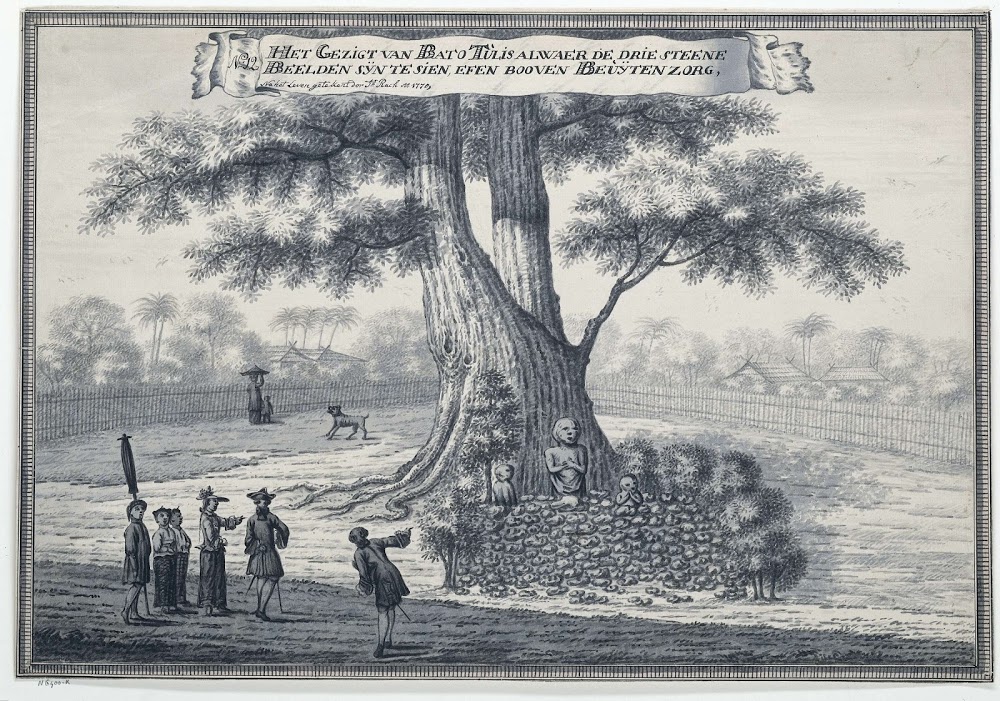 No 12
HET GEZIGT VAN BATO TÙLIS ALWAER DE DRIE STEENE
BEELDEN SŸN TE SIEN, EFEN BOOVEN BEUŸTEN ZORG,
na het Leven getekent dor Js Rach